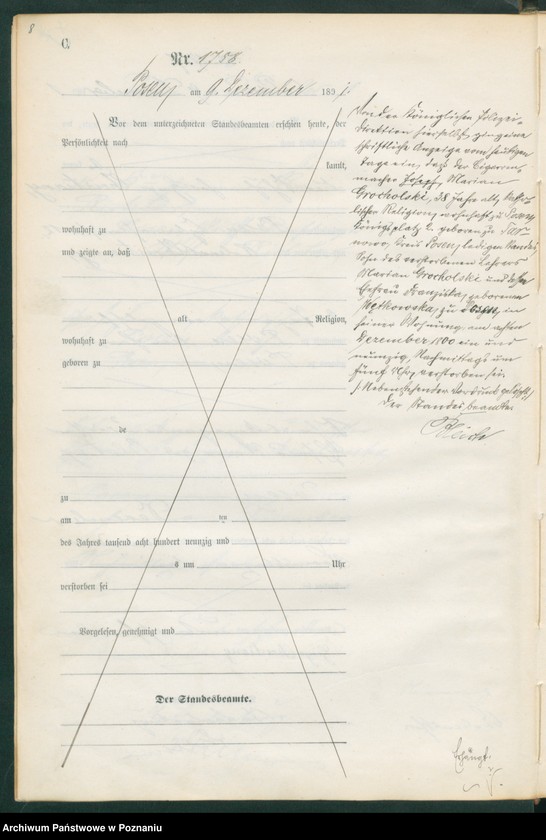 8
C.
Nr. 1788.
Posen, am 9. Dezember 1891.
Vor dem unterzeichneten Standesbeamten erschien heute, der
Persönlichkeit nach
kannt,
wohnhaft zu
und zeigte an, daß
alt Religion,
wohnhaft zu
geboren zu
de
zu
am ten
des Jahres tausend acht hundert neunzig und
s um Uhr
verstorben sei
Vorgelesen, genehmigt und
Der Standesbeamte.
Von der Königlichen Polizei-
direktion hierselbst ging eine
schriftliche Anzeige vom heutigen
Tage ein, daß der Cigarren-
macher Joseph, Marian
Grocholski, 38 Jahre alt, katho-
lischer Religion, wohnhaft zu Posen,
Königsplatz geboren zu Tar-
nowo, Kreis Posen, ledigen Standes,
Sohn des verstorbenen Lehrers
Marian Grocholski und dessen
Ehefrau Franziska, geborenen
zu Posen, in
seiner Wohnung, am achten
Dezember 1800 ein und
neunzig, Nachmittags um
fünf Uhr, verstorben sei.
Der Standesbeamte
Erhängt.
Archiwum Państwowe w Poznaniu